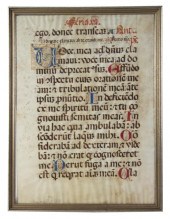 ego, donec transeat
Voce mea ad dñm cla
maui: voce mea ad do
minum deprecat⁹ sum. Effūdo
in cōspectu eius orationem me
am: & tribulationē meā ate
ipsum pnūtio. In deficiēdo
ex me spiritum meum: & tu
cognouisti semitas meas. In
uia hac qua ambulabā: ab
scōderūt laqueū mihi. Cō
siderabā ad dexterā, & vide
bā: & nō erat q̄ cognosceret
me. Perijt fuga a me: & nō
est q̄ requirat aīam meā.